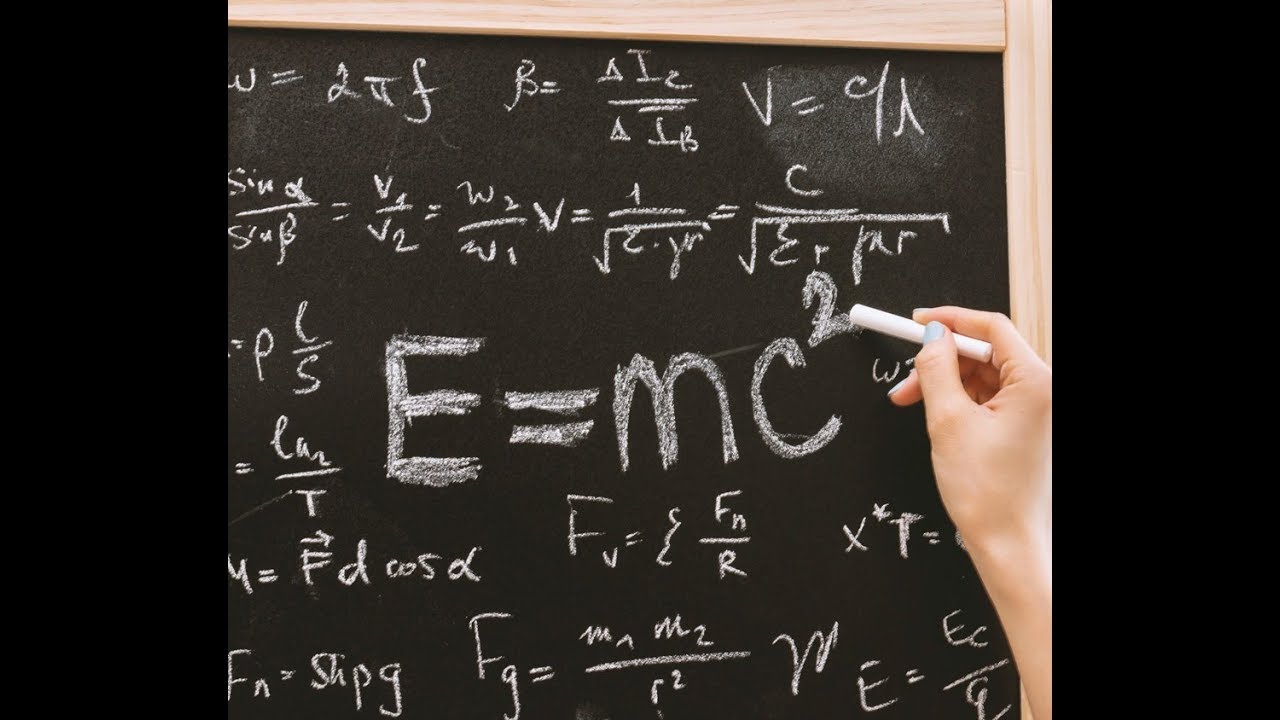 w = 2πf β = ΔI_C / ΔI_B V = q/λ
sin α / sin β = V₁ / V₂ = w₂ / w₁ V = 1 / √(Ɛ · μr) = C / √(Ɛr μr)
= ρ l / S
E = mc² w =
= ln₂ / T
F_v = { F_n / R x*T =
= F⃗ d cos α
F_n = Shpg F_g = m₁ m₂ / r² E = E_C / q